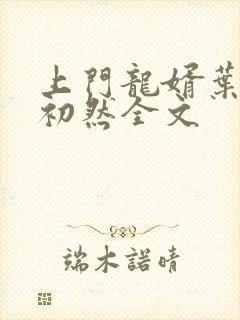 上門龍婿葉
初然全文
端木諾晴